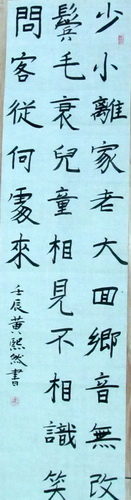 少小離家老大回鄉音無改
鬢毛衰兒童相見不相識笑
問客從何處來
壬辰黃熙然書